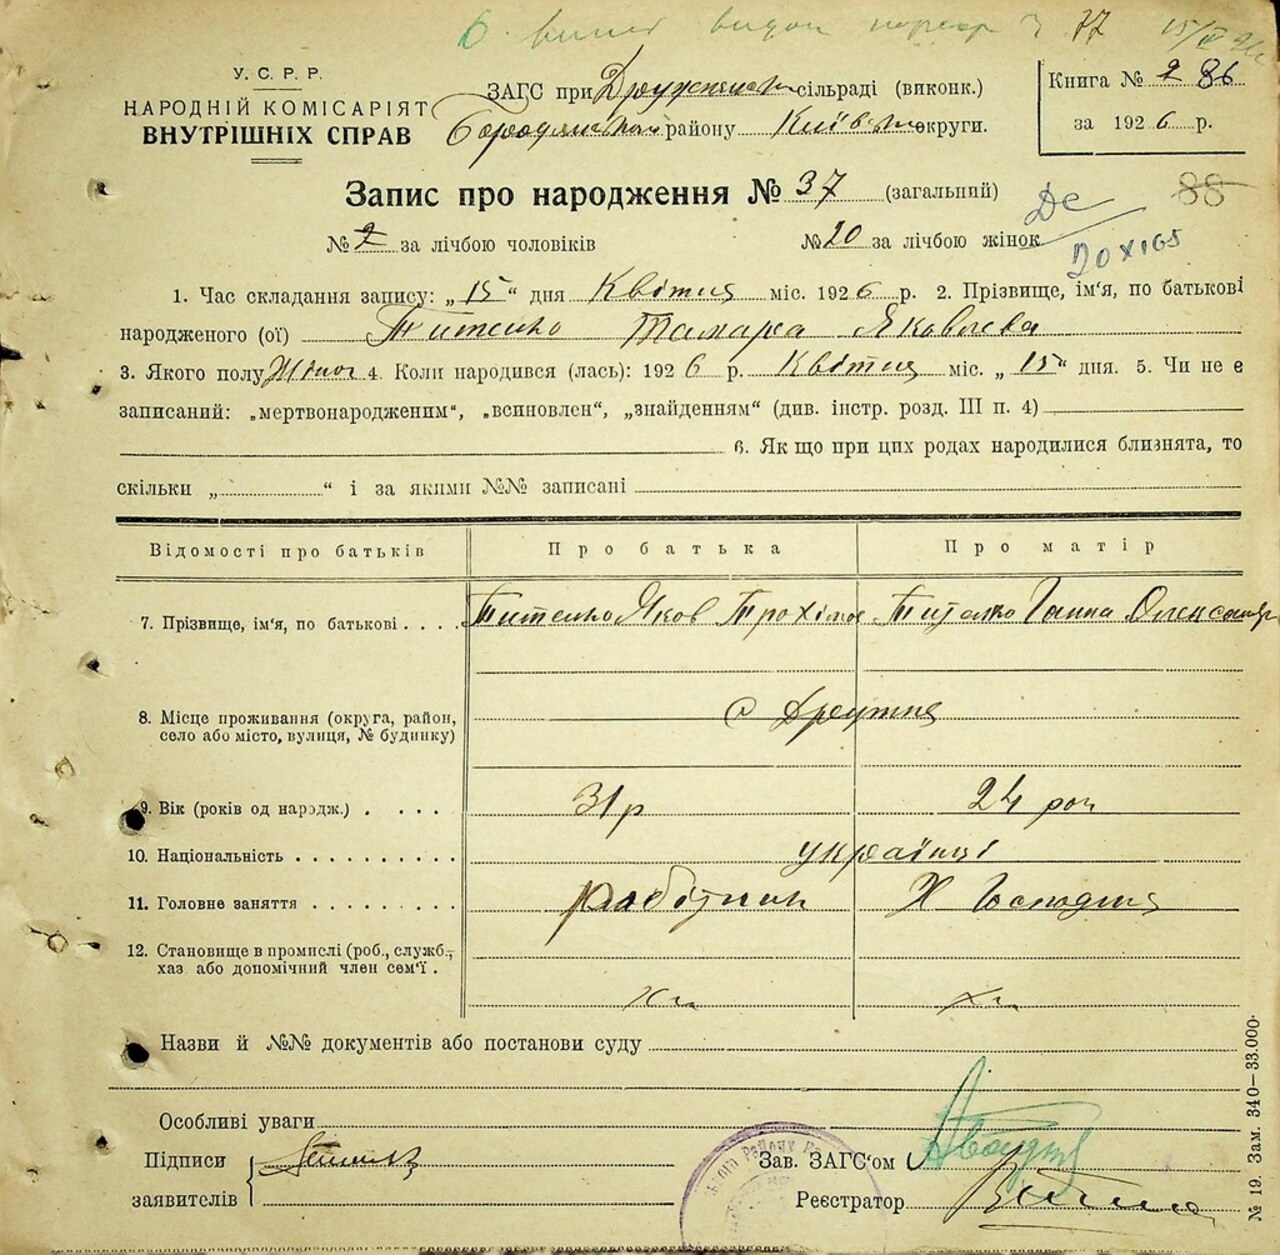 77
У. С. Р. Р.
НАРОДНІЙ КОМІСАРІЯТ
ВНУТРІШНІХ СПРАВ
ЗАГС при сільраді (виконк.)
району Київської округи.
Книга № 2 86
за 1926 р.
Запис про народження № 37 (загальний)
88
№ за лічбою чоловіків № 20 за лічбою жінок
20 XI 65
1. Час складання запису: „15“ дня Квітня міс. 1926 р. 2. Прізвище, ім'я, по батькові
народженого (ої) Титенко Тамара Яковлева
3. Якого полу Жіноч 4. Коли народився (лась): 1926 р. Квітня міс. „15“ дня. 5. Чи не є
записаний: „мертвонародженим“, „всиновлен“, „знайденням“ (див. інстр. розд. III п. 4)
6. Як що при цих родах народилися близнята, то
скільки „ “ і за якими №№ записані
Відомості про батьків Про батька Про матір
7. Прізвище, ім'я, по батькові . . . . Титенко Яков Трохімов Титенко Ганна Олександр
8. Місце проживання (округа, район,
село або місто, вулиця, № будинку) с Дружня
9. Вік (років од народж.) . . . . 31 р 24 рок
10. Національність . . . . . . . . . . українці
11. Головне заняття . . . . . . . . . робітник Х Господня
12. Становище в промислі (роб., служб.,
хаз або допомічний член сем'ї .
Назви й №№ документів або постанови суду
Особливі уваги
Підписи
заявителів
Зав. ЗАГС'ом
Реєстратор
№ 19. Зам. 340—33.000·